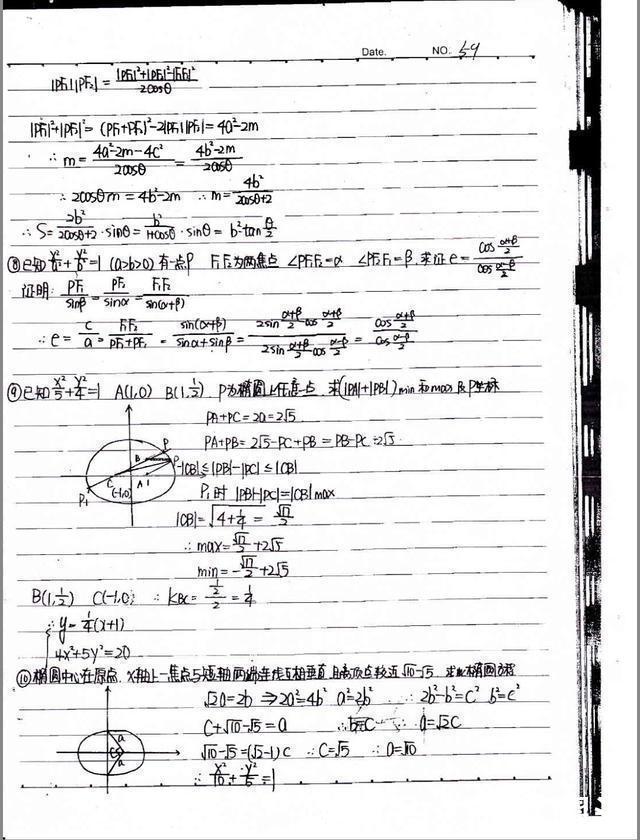 Date. NO. 59
|PF₁||PF₂| = (|PF₁|²+|PF₂|²-|F₁F₂|²)/2cosθ
|PF₁|²+|PF₂|² = (PF₁+PF₂)²-2|PF₁||PF₂| = 4a²-2m
∴ m = (4a²-2m-4c²)/2cosθ = (4b²-2m)/2cosθ
∴ 2cosθm = 4b²-2m ∴ m = 4b²/(2cosθ+2)
∴ S = 2b²/(2cosθ+2) · sinθ = b²/(1+cosθ) · sinθ = b²tan θ/2
⑧已知 x²/a² + y²/b² = 1 (a>b>0) 有一点P F₁F₂为两焦点 ∠PF₁F₂=α ∠PF₂F₁=β, 求证 e = cos (α+β)/2 / cos (α-β)/2
证明: PF₁/sinβ = PF₂/sinα = F₁F₂/sin(α+β)
∴ e = c/a = F₁F₂/(PF₂+PF₁) = sin(α+β)/(sinα+sinβ) = 2sin (α+β)/2 cos (α+β)/2 / 2sin (α+β)/2 cos (α-β)/2 = cos (α+β)/2 / cos (α-β)/2
⑨已知 x²/5 + y²/4 = 1 A(1,0) B(1,1/2) P为椭圆上任意一点, 求(|PA|+|PB|)min和max及P坐标
PA+PC=2a=2√5
PA+PB = 2√5-PC+PB = PB-PC+2√5
-|CB| ≤ |PB|-|PC| ≤ |CB|
P₁时 |PB|-|PC|=|CB| max
B P P C A 1 (-1,0) P₁
|CB| = √(4+1/4) = √17/2
∴ max = √17/2 + 2√5
min = -√17/2 + 2√5
B(1,1/2) C(-1,0) ∴ KBC = (1/2)/2 = 1/4
∴ y = 1/4(x+1)
4x²+5y²=20
⑩椭圆中心在原点, x轴上一焦点与短轴两端连线互相垂直, 且 顶点较近√10-√5, 求 椭圆方程
√2a=2b ⇒ 2a²=4b² a²=2b² ∴ 2b²-b²=c² b²=c²
c+√10-√5=a ∴ b=c ∴ a=√2c
√10-√5=(√2-1)c ∴ c=√5 ∴ a=√10
a c a
∴ x²/10 + y²/5 = 1